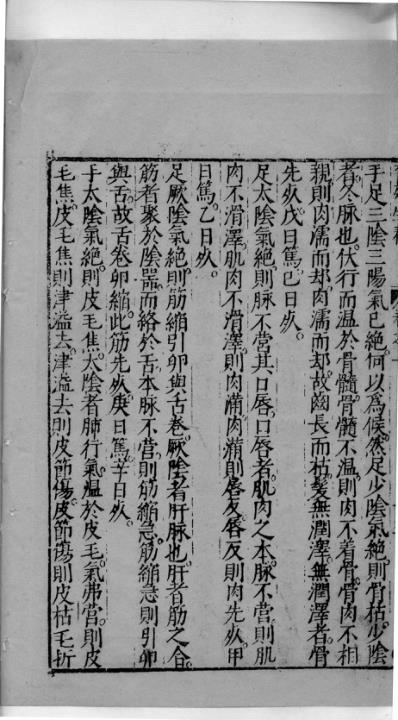 手足三陰三陽氣已絕何以為候然足少陰氣絕則骨枯少陰
者冬脉也伏行而温於骨髓骨髓不温則肉不着骨骨肉不相
親則肉濡而却肉濡而却故齒長而枯髮無潤澤無潤澤者骨
先死戊日篤己日死
足太陰氣絕則脉不營其口唇口唇者肌肉之本脉不營則肌
肉不滑澤肌肉不滑澤則肉滿肉滿則唇反唇反則肉先死甲
日篤乙日死
足厥陰氣絕則筋縮引卵與舌卷厥陰者肝脉也肝者筋之合
筋者聚於陰器而絡於舌本脉不營則筋縮急筋縮急則引卵
與舌故舌卷卵縮此筋先死庚日篤辛日死
手太陰氣絕則皮毛焦太陰者肺行氣温於皮毛氣弗營則皮
毛焦皮毛焦則津溢去津溢去則皮節傷皮節傷則皮枯毛折